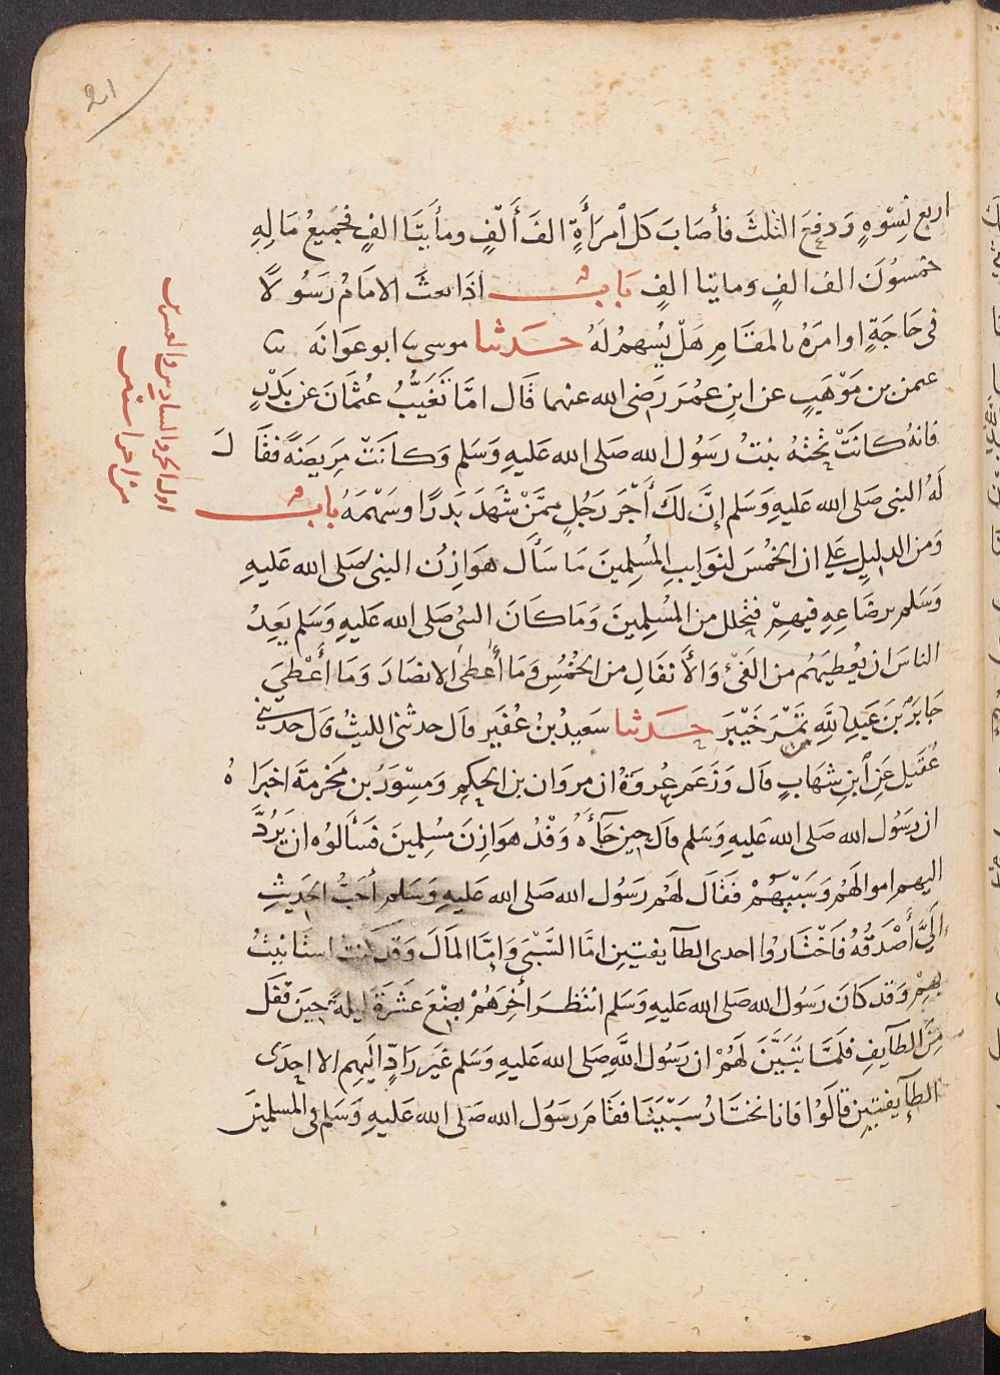 21
اربع نِسْوةٍ وَدفِعَ الثلثَ فأصَابَ كلَ أمرَأَةٍ الفَ أَلْفٍ ومأيتَا الفٍ فجَميعُ مَالِهِ
خمسوُنَ الف الفٍ ومايتا الفٍ بَابٌ اذَا بعثَ الامَامُ رَسُولًا
فى حَاجَةٍ او امرَهُ بالمقَامِ هَلْ يُسهمُ لَهُ حَدثنا موسى ابو عوَانَه
عثمن بن مَوْهَبٍ عن ابنِ عمُرَ رَضى الله عنهما قَال امَّا تَغَيُّبُ عثمَانَ عن بَدْرٍ
فانهُ كانَتْ تحْتهُ بنتُ رسَوُل الله صَلى الله عَليهِ وَسَلم وَكانَتْ مَرِيضَةً فقَالَ
لهُ النبى صَلى الله عَليهِ وَسَلم إنَّ لكَ أَجْرَ رَجُلٍ ممَّنْ شَهَدَ بَدرًا وسَهْمَهُ بابٌ
وَمن الدليلِ عَلى ان الخمُسَ لنوَايبِ المُسِلمينَ مَا سَأَلَ هَوَازِنُ النبى صَلى الله عَليهِ
وَسَلم برضَاعِهِ فيهِمْ فتحلل من المُسِلمينَ وَمَا كَانَ النبى صَلى الله عَليهِ وَسَلم يَعِدُ
الناسَ ان يُعطيَهُم من الفَىْءِ وَالأنفَالِ من الخُمُسِ وَمَا أَعْطى الانصَارَ وَمَا أَعْطى
جَابرَ بنَ عَبدِ اللهِ تمْرَ خَيْبَرَ حَدثنا سَعيدُ بنُ عُفَيرٍ قال حدثنى الليثُ قال حدثنى
عُقَيل عَنِ ابنِ شهَابٍ قال وَزَعَم عُروَةُ ان مروَان بن الحكمِ وَمِسْوَرُ بن مَخرمةَ اخبراهُ
ان رَسُول الله صَلى الله عَليهِ وَسَلم قال حِين جَآءَهُ وَفْدُ هوَازِنَ مُسِلمينَ فَسَأَلوُه ان يَرُدَّ
اليهم اموالَهَمُ وَسَبْيَهُمْ فَقَالَ لهَمُ رَسوُل الله صَلى الله عَليهِ وَسَلم أحَبُّ الحَديثِ
إلَىَّ أَصْدَقُهُ فَاخْتَارُوا احدى الطآيفتينِ امَّا السَّبْىَ وَإمَّا المَالَ وَقَد كنتُ استَانيتُ
بهِمْ وَقد كانَ رَسوُل الله صَلى الله عَليهِ وَسَلم انْتَظرَ أخرَهُمْ بِضْعَ عَشْرَةَ لَيلَةً حِينَ قفَل
مِنَ الطآيفِ فلَمَّا تَبَيَّنَ لهَمُ ان رَسوُل اللهِ صَلى الله عَليهِ وَسَلم غَيرَ رَادٍّ اليَهِم الا احِدَى
الطآيفتينِ قالوُا فانا نختَارُ سَبْيَنَا فقَامَ رَسوُل الله صَلى الله عَليهِ وَسَلم فى المسلمينَ
اول الجزو السادس والعشرين
من اجزا ستين